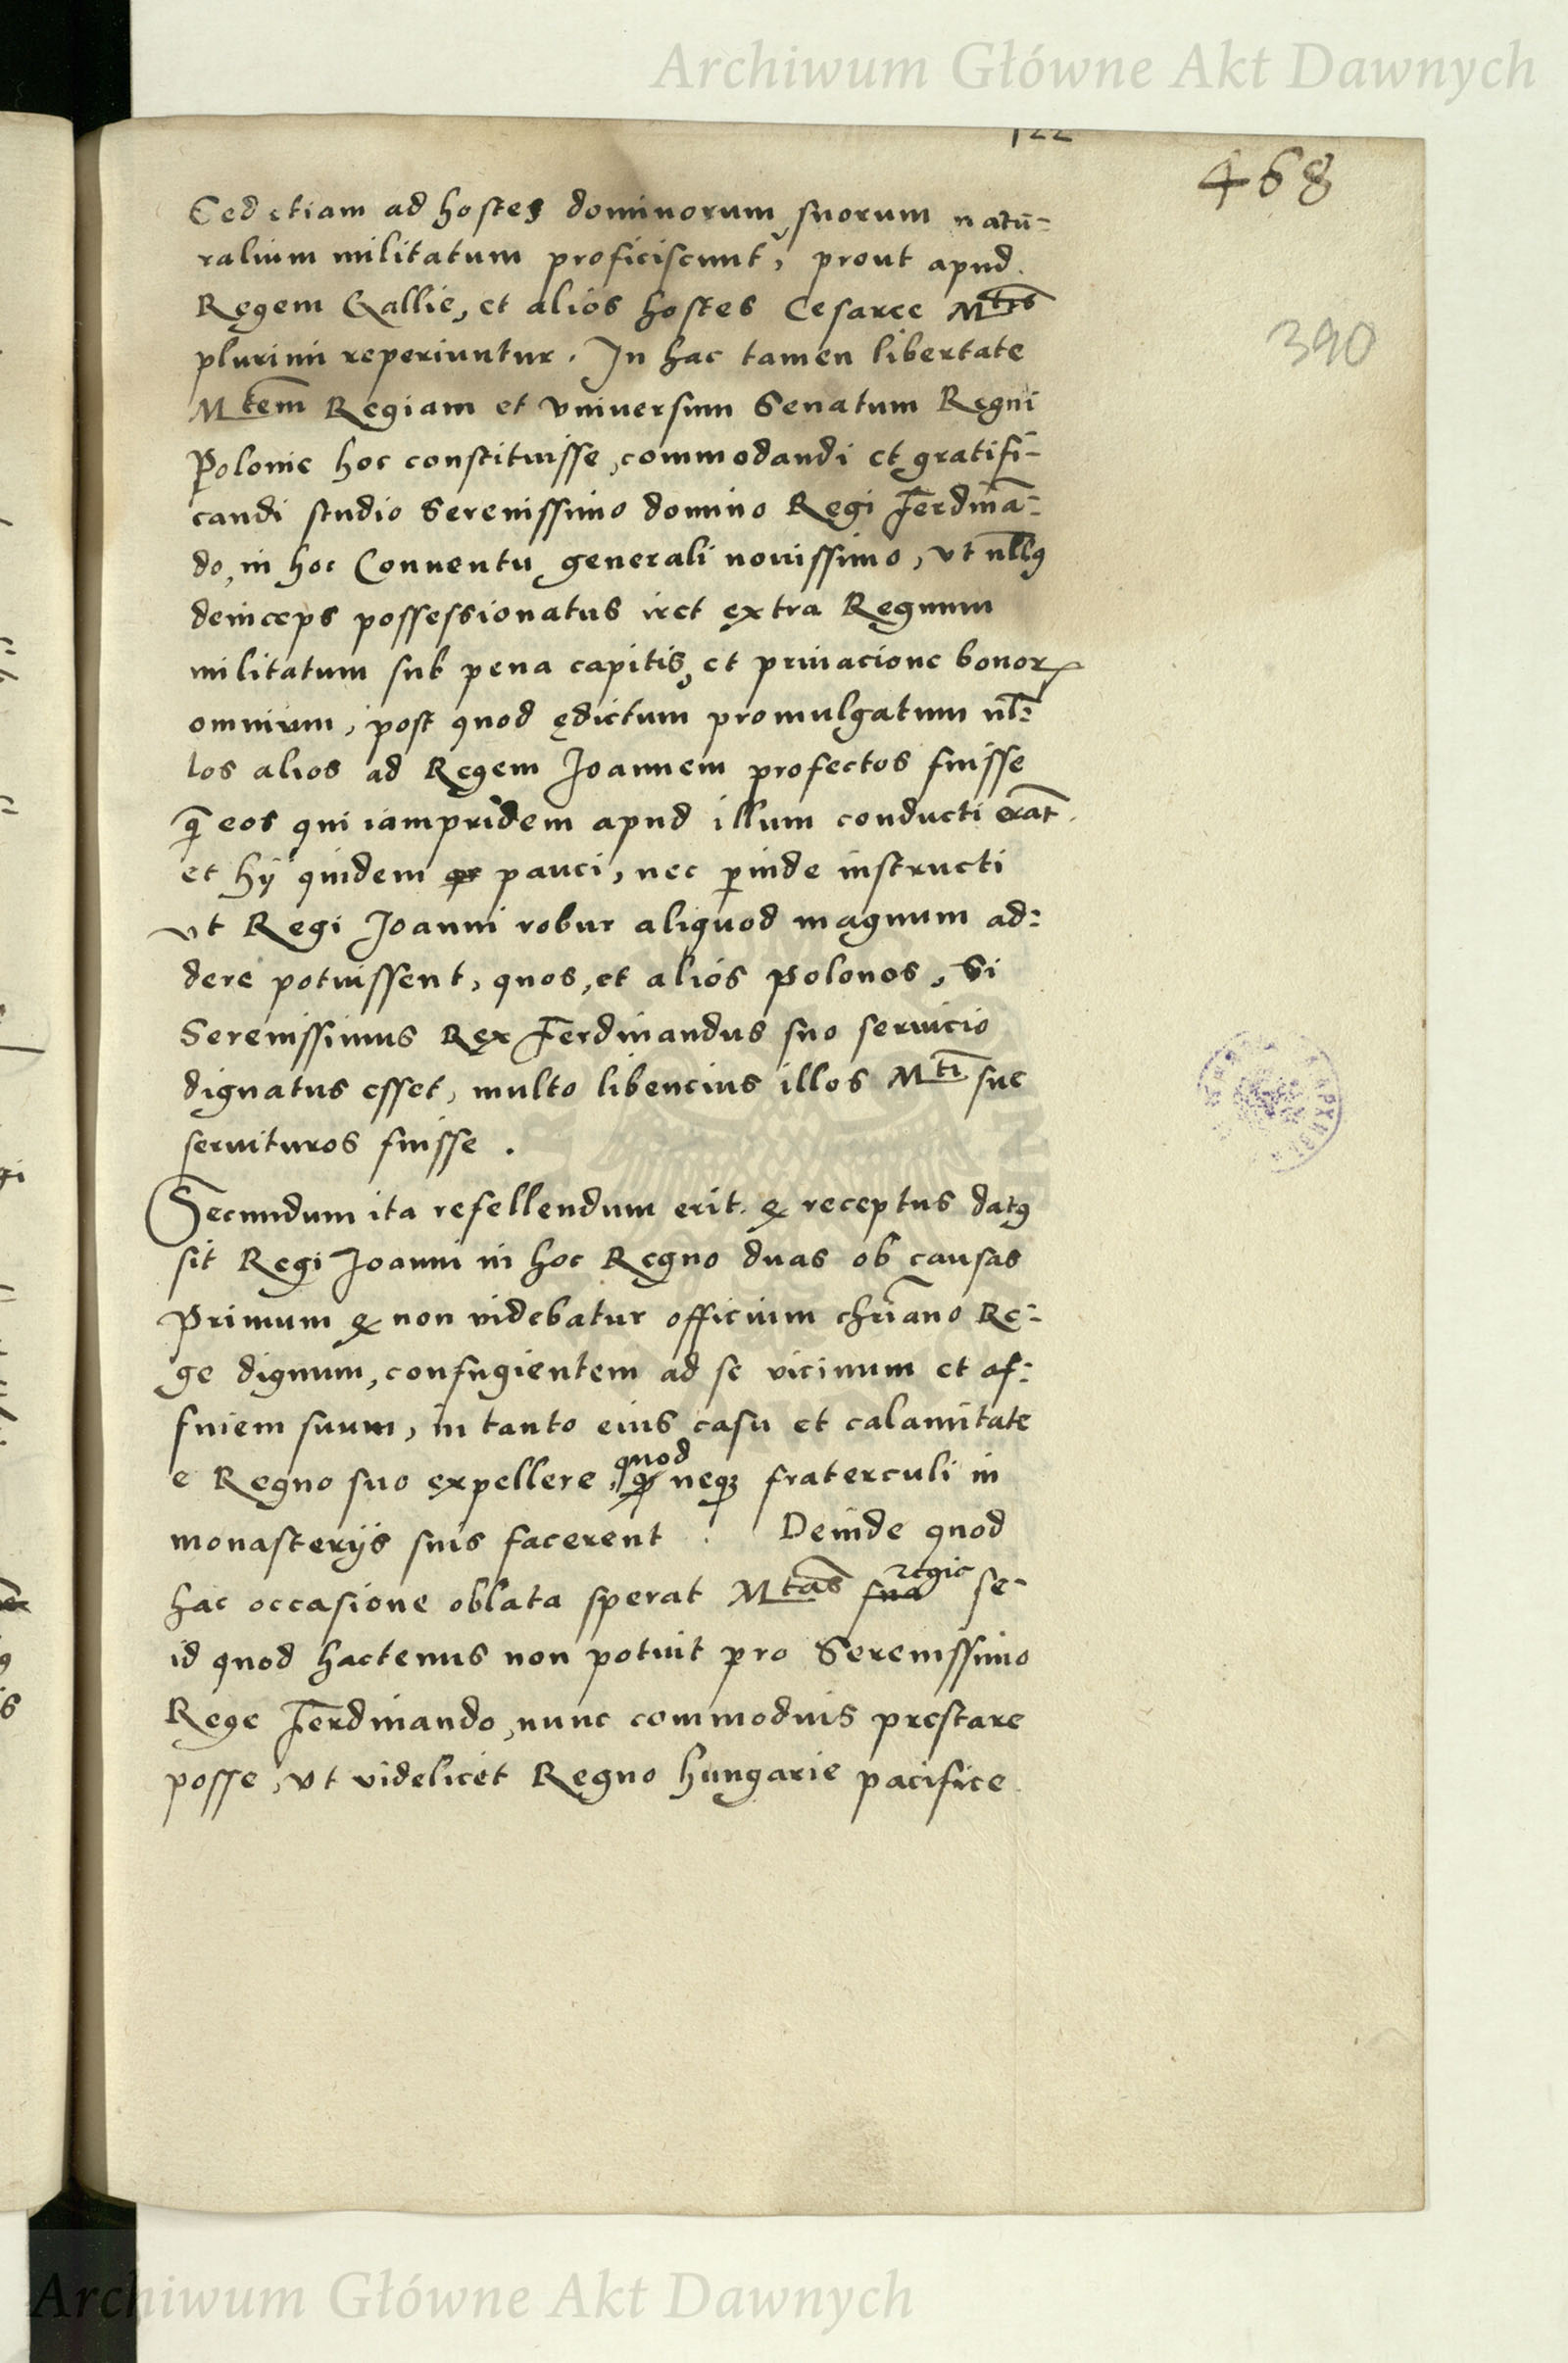 Archiwum Główne Akt Dawnych
122
468
390
Sed etiam ad hostes dominorum suorum natū=
ralium militatum proficiscunt᷑, prout apud
Regem Gallie, et alios hostes Cesaree Mtis
plurimi reperiuntur. In hac tamen libertate
Mtem̄ Regiam et vniuersum Senatum Regni
Polonie hoc constituisse, commodandi et gratifi=
candi studio Serenissimo domino Regi Ferdinā=
do, in hoc Conuentu generali nouissimo, vt nllꝯ
deinceps possessionatus iret extra Regnum
militatum sub pena capitis, et priuacione bonoꝝ
omnium, post quod ędictum promulgatum nl̄=
los alios ad Regem Joannem profectos fuisse
q̄ eos qui iampridem apud illum conducti erāt.
et hÿ quidem pauci, nec ꝑinde instructi
vt Regi Joanni robur aliquod magnum ad=
dere potuissent, quos, et alios Polonos, Si
Serenissimus Rex Ferdinandus suo seruicio
dignatus esset, multo libencius illos Mti sue
seruituros fuisse.
Secundum ita refellendum erit. ꝙ receptus datꝯ
sit Regi Joanni in hoc Regno duas ob causas
Primum ꝙ non videbatur officium chriano Re=
ge dignum, confugientem ad se vicinum et af=
finem suum, in tanto eius casu et calamitate
e Regno suo expellere, quod neqꝫ fraterculi in
monasterijs suis facerent. Deinde quod
hac occasione oblata sperat Mtas sua regie se
id quod hactenus non potuit pro Serenissimo
Rege Ferdinando, nunc commodius prestare
posse, vt videlicet Regno Hungarie pacifice
Archiwum Główne Akt Dawnych